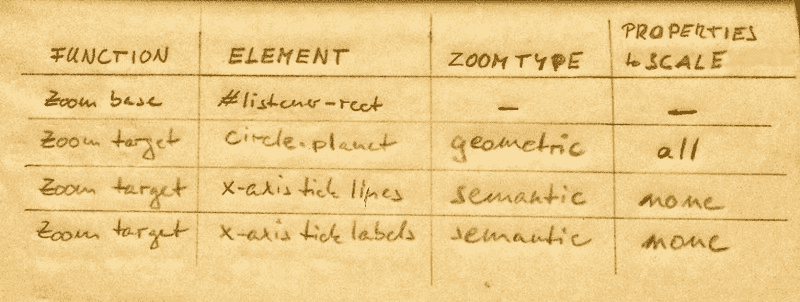 FUNCTION ELEMENT ZOOM TYPE PROPERTIES to SCALE
Zoom base #listener-rect – –
Zoom target circle.planet geometric all
Zoom target x-axis tick lines semantic none
Zoom target x-axis tick labels semantic none